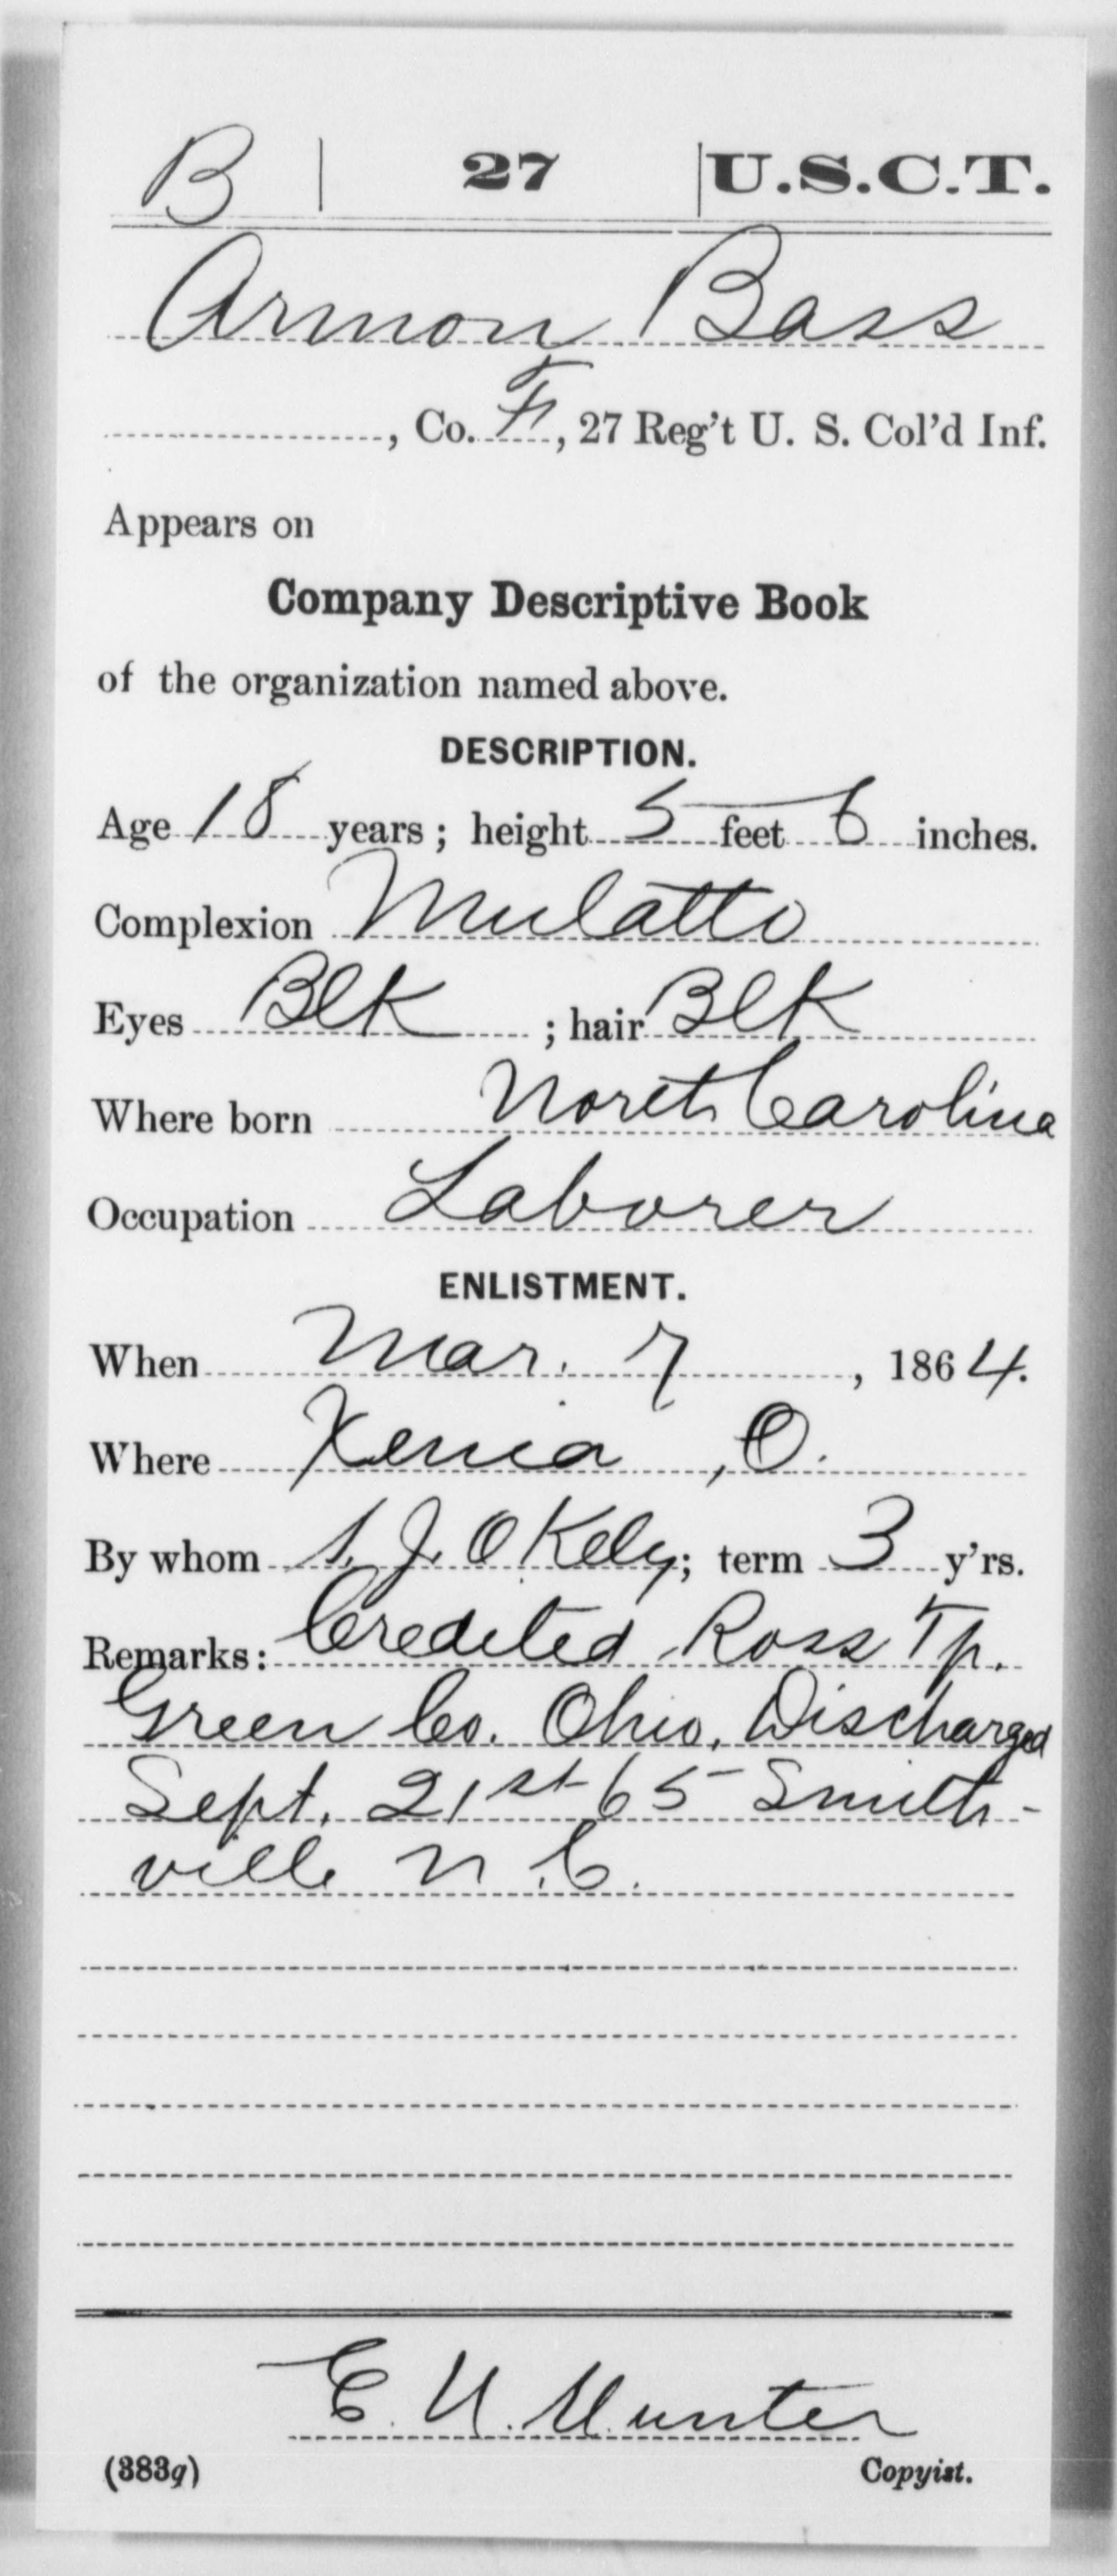 B | 27 | U.S.C.T.
Armon Bass
, Co. F, 27 Reg't U. S. Col'd Inf.
Appears on
Company Descriptive Book
of the organization named above.
DESCRIPTION.
Age 18 years; height 5 feet 6 inches.
Complexion Mulatto
Eyes Blk ; hair Blk
Where born North Carolina
Occupation Laborer
ENLISTMENT.
When Mar. 7, 1864.
Where Xenia, O.
By whom S. J. O Kely; term 3 y'rs.
Remarks: Credited Ross Tp.
Green Co. Ohio. Discharged
Sept. 21st 65 Smith-
ville N.C.
E. U. Hunter
(383g) Copyist.